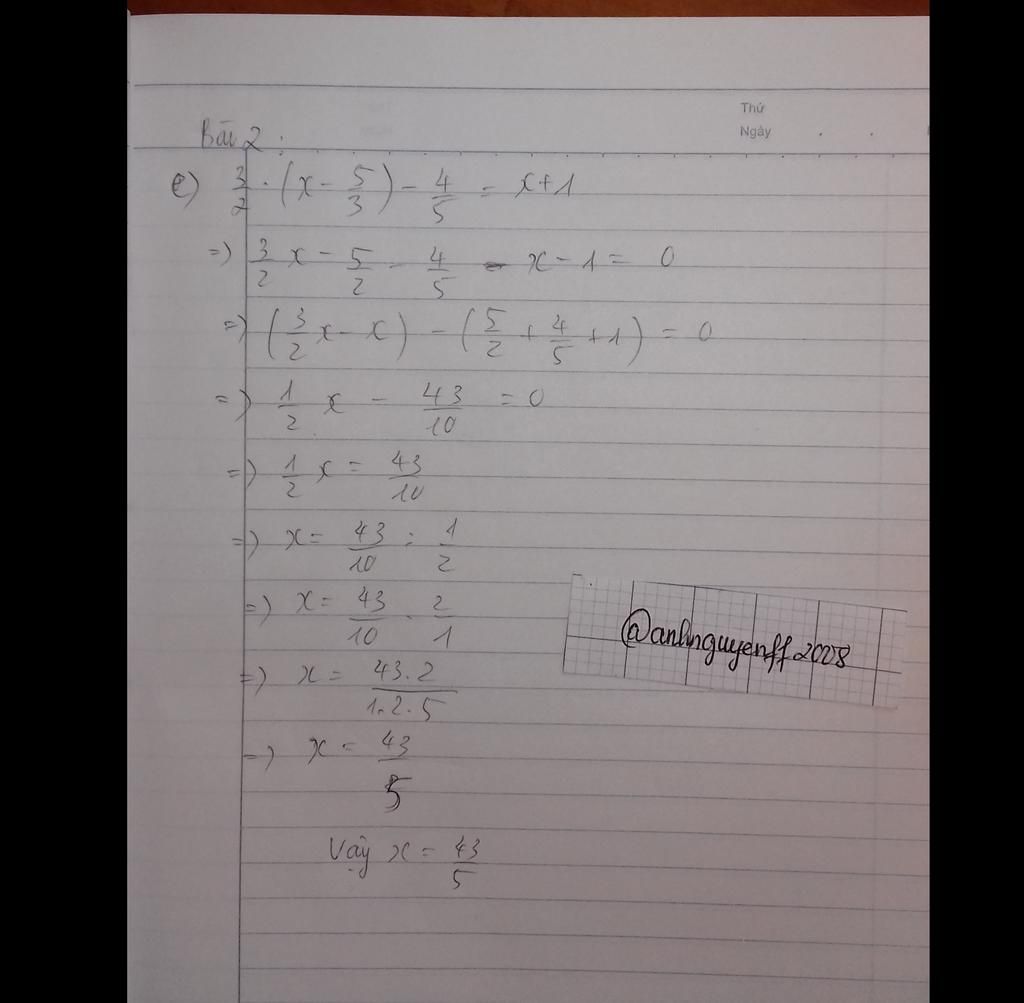 Thứ
Ngày
Bài 2:
e) 3/2 . (x - 5/3) - 4/5 = x + 1
=) 3/2 x - 5/2 - 4/5 - x - 1 = 0
=) (3/2 x - x) - (5/2 + 4/5 + 1) = 0
=) 1/2 x - 43/10 = 0
=) 1/2 x = 43/10
=) x = 43/10 : 1/2
=) x = 43/10 . 2/1
=) x = 43.2/1.2.5
=) x = 43/5
Vậy x = 43/5
@anhnguyenff2008